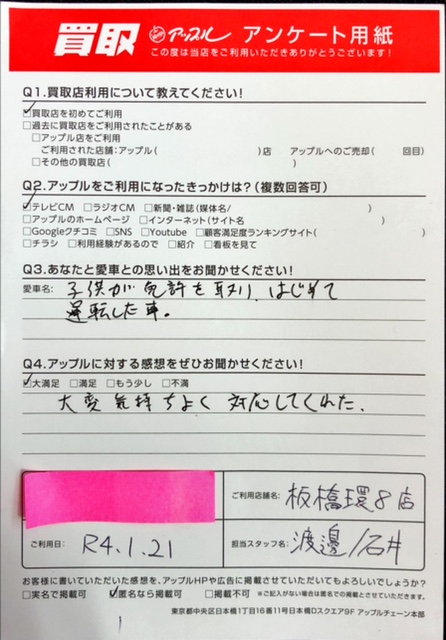 買取 アップル アンケート用紙
この度は当店をご利用いただきありがとうございます!
Q1.買取店利用について教えてください!
☑買取店を初めてご利用
□過去に買取店をご利用されたことがある
□アップル店をご利用
ご利用された店舗:アップル( )店 アップルへのご売却( 回目)
□その他の買取店( )
Q2.アップルをご利用になったきっかけは?(複数回答可)
☑テレビCM □ラジオCM □新聞・雑誌(媒体名/ )
□アップルのホームページ □インターネット(サイト名 )
□Googleクチコミ □SNS □Youtube □顧客満足度ランキングサイト( )
□チラシ □利用経験があるので □紹介 □看板を見て
Q3.あなたと愛車との思い出をお聞かせください!
愛車名: 子供が免許を取り、はじめて
運転した車。
Q4.アップルに対する感想をぜひお聞かせください!
☑大満足 □満足 □もう少し □不満
大変気持ちよく対応してくれた.
ご利用店舗名: 板橋環8店
ご利用日: R4.1.21
担当スタッフ名: 渡邊/石井
お客様に書いていただいた感想を、アップルHPや広告に掲載させていただいてもよろしいでしょうか?
□実名で掲載可 ☑匿名なら掲載可 □掲載不可 ※ご記入がない場合は匿名での掲載とさせていただきます。
東京都中央区日本橋1丁目16番11号日本橋Dスクエア9F アップルチェーン本部